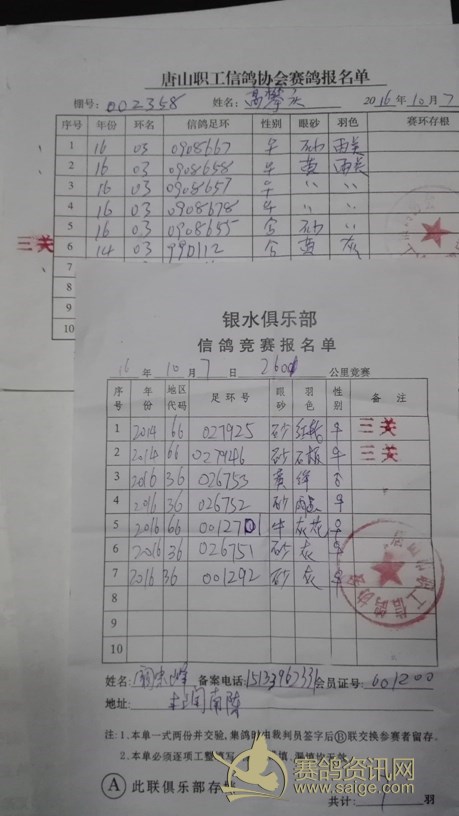 唐山职工信鸽协会赛鸽报名单
棚号: 002358 姓名: 2016年10月7
序号 年份 环名 信鸽足环 性别 眼砂 羽色 赛环存根
1 16 03 0908667 砂 雨点
2 16 03 0908658 黄 雨点
3 16 03 0908657 〃 〃
4 16 03 0908678 〃 〃
5 16 03 0908655 砂 〃
三关 6 14 03 990112 黄 灰
7
8
9
10
银水俱乐部
信鸽竞赛报名单
16年10月7日 260 公里竞赛
序号 年份 地区代码 足环号 眼砂 羽色 性别 备注
1 2014 66 027925 砂 三关
2 2014 66 027946 砂 石板 三关
3 2016 36 026753 黄
4 2016 36 026752 砂 雨点
5 2016 66 0012701 牛 灰花
6 2016 36 026751 砂 灰
7 2016 36 001292 砂 灰
8
9
10
姓名: 备案电话: 会员证号: 601200
地址:
注:1.本单一式两份并交验,集鸽时由裁判员签字后Ⓑ联交换参赛者留存。
2.本单必须逐项工整填写
Ⓐ 此联俱乐部存
共计: 1 羽
赛鸽资讯网
www.saige.com